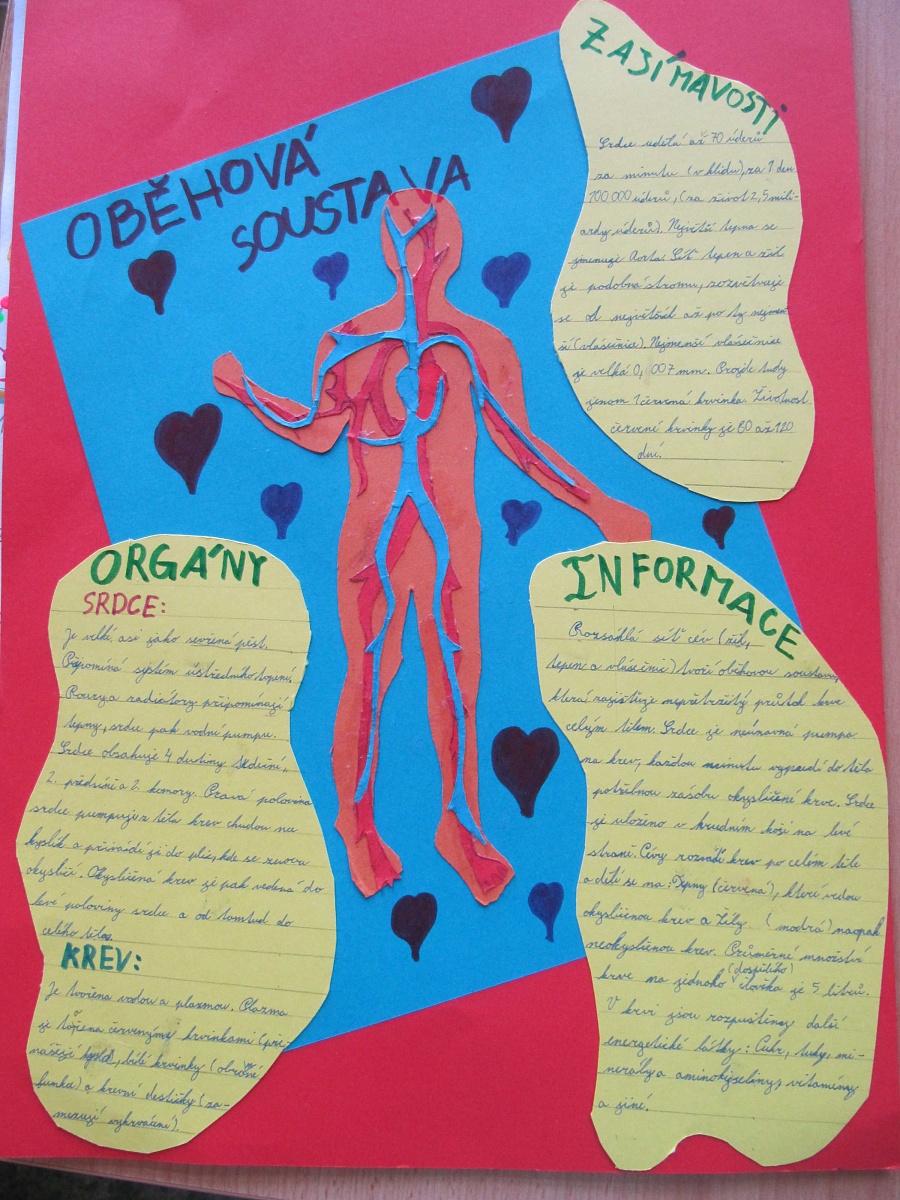 OBĚHOVÁ
SOUSTAVA
ZAJÍMAVOSTI
Srdce udělá až 70 úderů
za minutu (v klidu), za 1 den
100 000 úderů, (za život 2,5 mili-
ardy úderů). Největší tepna se
jmenuje Aorta. Síť tepen a žil
je podobná stromu, rozvětvuje
se od největších až po ty nejmen
ší (vlásečnice). Nejmenší vlásečnice
je velká 0,007 mm. Projde tudy
jenom 1 červená krvinka. Životnost
červené krvinky je 60 až 120
dní.
ORGÁNY
SRDCE:
Je velké asi jako sevřená pěst.
Připomíná systém ústředního topení.
Roury a radiátory připomínají
tepny, srdce pak vodní pumpu.
Srdce obsahuje 4 dutiny srdeční,
2. předsíně a 2. komory. Pravá polovina
srdce pumpuje z těla krev chudou na
kyslík a přivádí ji do plic, kde se znovu
okysličí. Okysličená krev je pak vedená do
levé poloviny srdce a od tamtud do
celého těla.
KREV:
Je tvořena vodou a plazmou. Plazma
je tvořena červenými krvinkami (pře-
nášejí kyslík), bílé krvinky (obranná
funkce) a krevní destičky (za-
mezují vykrvácení).
INFORMACE
Rozsáhlá síť cév (žil,
tepen a vlásečnic) tvoří oběhovou soustavu,
která zajišťuje nepřetržitý průtok krve
celým tělem. Srdce je neúnavná pumpa
na krev, každou minutu vypudí do těla
potřebnou zásobu okysličené krve. Srdce
je uloženo v hrudním koši na levé
straně. Cévy rozvádí krev po celém těle
a dělí se na: Tepny (červená), které vedou
okysličenou krev a Žíly (modrá) naopak
neokysličenou krev. Průměrné množství
krve na jednoho (dospělého) člověka je 5 litrů.
V krvi jsou rozpuštěny další
energetické látky: Cukr, tuky, mi-
nerály a aminokyseliny, vitamíny
a jiné.